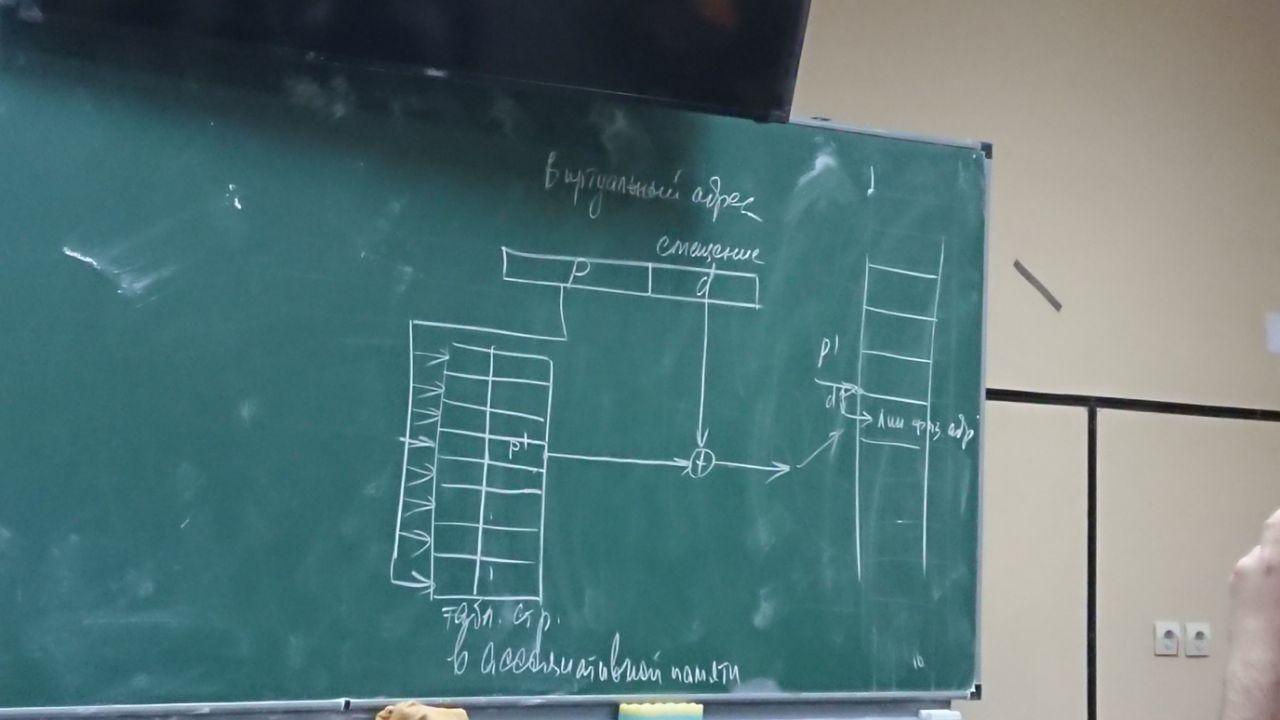 Виртуальный адрес
смещение
p d
p'
p'
d
лин физ. адр
+
табл. стр.
в ассоциативной памяти